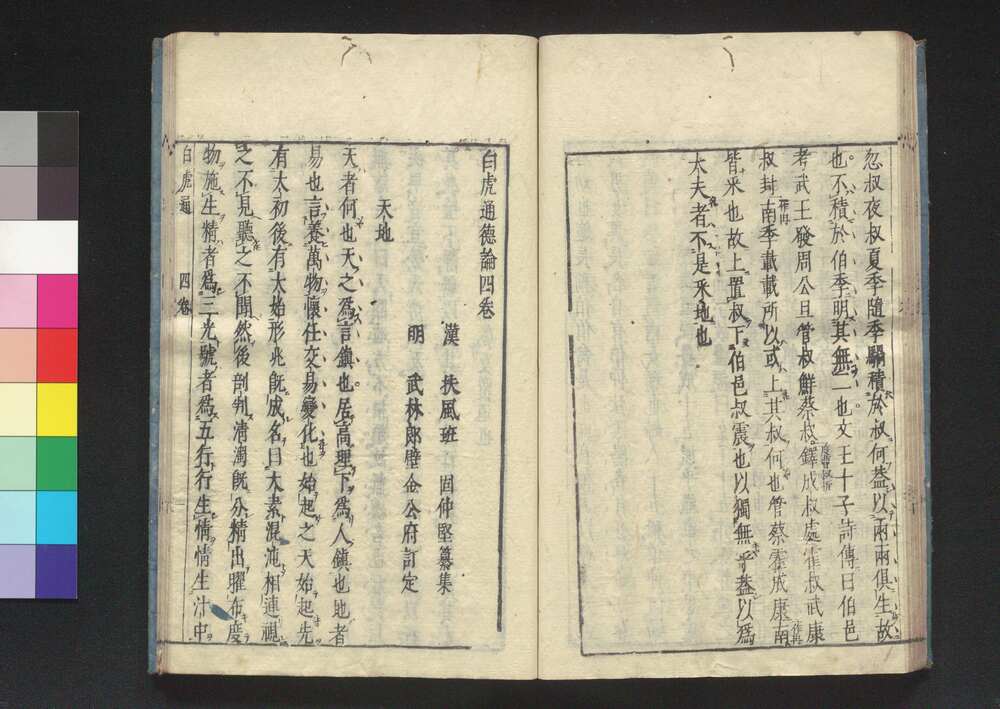 忽叔夜叔夏季隨季騧積於叔何蓋以兩兩俱生故
也不積於伯季明其無二也文王十子詩傳曰伯邑
考武王發周公旦管叔鮮蔡叔鐸成叔處霍叔武康
叔封南季載載所以或上其叔何也管蔡霍成康南
皆采也故上置叔下伯邑叔震也以獨無乎蓋以爲
大夫者不是采地也
白虎通德論四卷
漢 扶風班 固仲堅纂集
明 武林郎壁金公府訂定
天地
天者何也天之爲言鎮也居高理下爲人鎮也地者
易也言養萬物懷任交易變化也始起之天始起先
有太初後有太始形兆既成名曰太素混沌相連視
之不見聽之不聞然後剖判清濁既分精出曜布度
物施生精者爲三光號者爲五行行生情情生汁中
白虎通 四卷